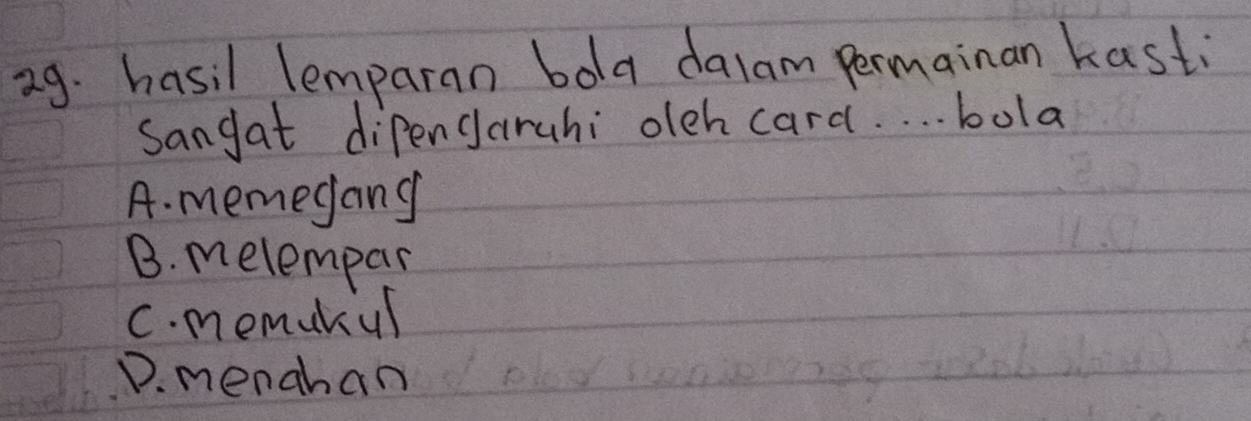 29. hasil lemparan bola dalam permainan kasti
sangat dipengaruhi oleh cara .... bola
A. memegang
B. melempar
C. memukul
D. menahan